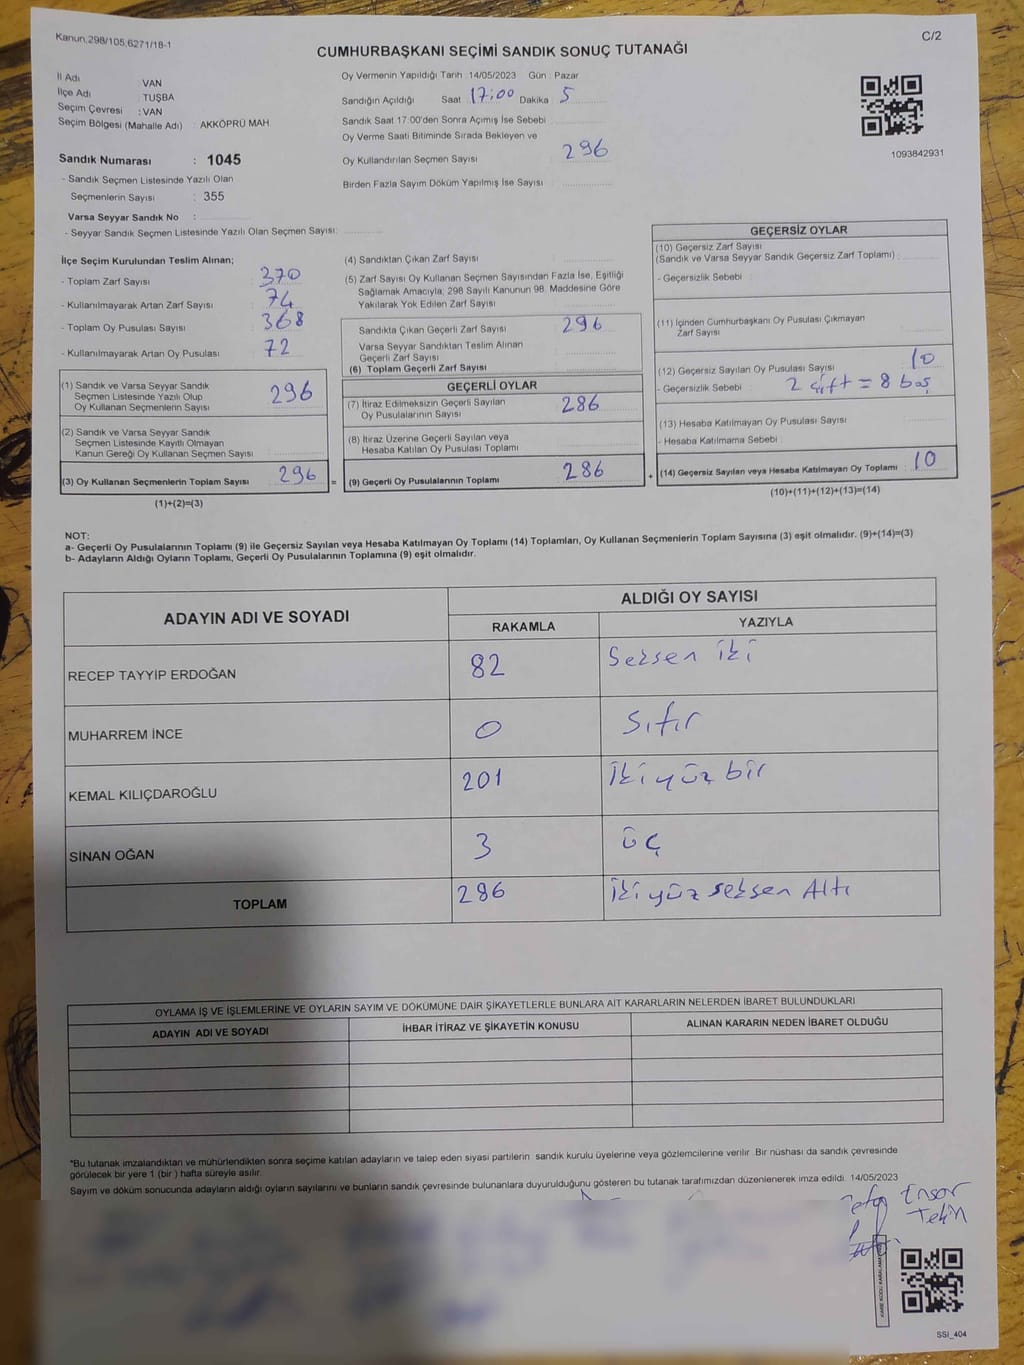 Kanun;298/105,6271/18-1
C/2
CUMHURBAŞKANI SEÇİMİ SANDIK SONUÇ TUTANAĞI
İl Adı VAN
İlçe Adı TUŞBA
Seçim Çevresi : VAN
Seçim Bölgesi (Mahalle Adı) : AKKÖPRÜ MAH
Sandık Numarası : 1045
- Sandık Seçmen Listesinde Yazılı Olan
Seçmenlerin Sayısı : 355
Varsa Seyyar Sandık No :
- Seyyar Sandık Seçmen Listesinde Yazılı Olan Seçmen Sayısı:
Oy Vermenin Yapıldığı Tarih :14/05/2023 Gün : Pazar
Sandığın Açıldığı Saat 17:00 Dakika 5
Sandık Saat 17:00'den Sonra Açımış İse Sebebi
Oy Verme Saati Bitiminde Sırada Bekleyen ve
Oy Kullandırılan Seçmen Sayısı 296
Birden Fazla Sayım Döküm Yapılmış İse Sayısı
1093842931
İlçe Seçim Kurulundan Teslim Alınan;
- Toplam Zarf Sayısı 370
- Kullanılmayarak Artan Zarf Sayısı 74
- Toplam Oy Pusulası Sayısı 368
- Kullanılmayarak Artan Oy Pusulası 72
(1) Sandık ve Varsa Seyyar Sandık
Seçmen Listesinde Yazılı Olup
Oy Kullanan Seçmenlerin Sayısı 296
(2) Sandık ve Varsa Seyyar Sandık
Seçmen Listesinde Kayıtlı Olmayan
Kanun Gereği Oy Kullanan Seçmen Sayısı
(3) Oy Kullanan Seçmenlerin Toplam Sayısı 296 =
(1)+(2)=(3)
(4) Sandıktan Çıkan Zarf Sayısı
(5) Zarf Sayısı Oy Kullanan Seçmen Sayısından Fazla İse, Eşitliği
Sağlamak Amacıyla; 298 Sayılı Kanunun 98. Maddesine Göre
Yakılarak Yok Edilen Zarf Sayısı
Sandıkta Çıkan Geçerli Zarf Sayısı 296
Varsa Seyyar Sandıktan Teslim Alınan
Geçerli Zarf Sayısı
(6) Toplam Geçerli Zarf Sayısı
GEÇERLİ OYLAR
(7) İtiraz Edilmeksizin Geçerli Sayılan
Oy Pusulalarının Sayısı 286
(8) İtiraz Üzerine Geçerli Sayılan veya
Hesaba Katılan Oy Pusulası Toplamı
(9) Geçerli Oy Pusulalarının Toplamı 286 +
GEÇERSİZ OYLAR
(10) Geçersiz Zarf Sayısı
(Sandık ve Varsa Seyyar Sandık Geçersiz Zarf Toplamı) :
- Geçersizlik Sebebi :
(11) İçinden Cumhurbaşkanı Oy Pusulası Çıkmayan
Zarf Sayısı
(12) Geçersiz Sayılan Oy Pusulası Sayısı 10
- Geçersizlik Sebebi 2 çift = 8 boş
(13) Hesaba Katılmayan Oy Pusulası Sayısı
- Hesaba Katılmama Sebebi
(14) Geçersiz Sayılan veya Hesaba Katılmayan Oy Toplamı : 10
(10)+(11)+(12)+(13)=(14)
NOT:
a- Geçerli Oy Pusulalarının Toplamı (9) ile Geçersiz Sayılan veya Hesaba Katılmayan Oy Toplamı (14) Toplamları, Oy Kullanan Seçmenlerin Toplam Sayısına (3) eşit olmalıdır. (9)+(14)=(3)
b- Adayların Aldığı Oyların Toplamı, Geçerli Oy Pusulalarının Toplamına (9) eşit olmalıdır.
ADAYIN ADI VE SOYADI ALDIĞI OY SAYISI
RAKAMLA YAZIYLA
RECEP TAYYİP ERDOĞAN 82 Seksen iki
MUHARREM İNCE 0 Sıfır
KEMAL KILIÇDAROĞLU 201 İkiyüz bir
SİNAN OĞAN 3 üç
TOPLAM 286 İkiyüz seksen Altı
OYLAMA İŞ VE İŞLEMLERİNE VE OYLARIN SAYIM VE DÖKÜMÜNE DAİR ŞİKAYETLERLE BUNLARA AİT KARARLARIN NELERDEN İBARET BULUNDUKLARI
ADAYIN ADI VE SOYADI İHBAR İTİRAZ VE ŞİKAYETİN KONUSU ALINAN KARARIN NEDEN İBARET OLDUĞU
*Bu tutanak imzalandıktan ve mühürlendikten sonra seçime katılan adayların ve talep eden siyasi partilerin sandık kurulu üyelerine veya gözlemcilerine verilir .Bir nüshası da sandık çevresinde
görülecek bir yere 1 (bir ) hafta süreyle asılır.
Sayım ve döküm sonucunda adayların aldığı oyların sayılarını ve bunların sandık çevresinde bulunanlara duyurulduğunu gösteren bu tutanak tarafımızdan düzenlenerek imza edildi. 14/05/2023
Ensar
Tekin
SSI_404